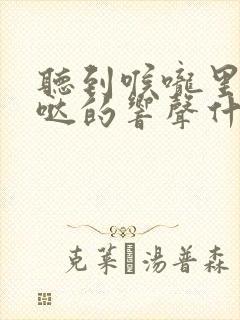 聽到喉嚨里
哒的響聲什
克萊 湯普森